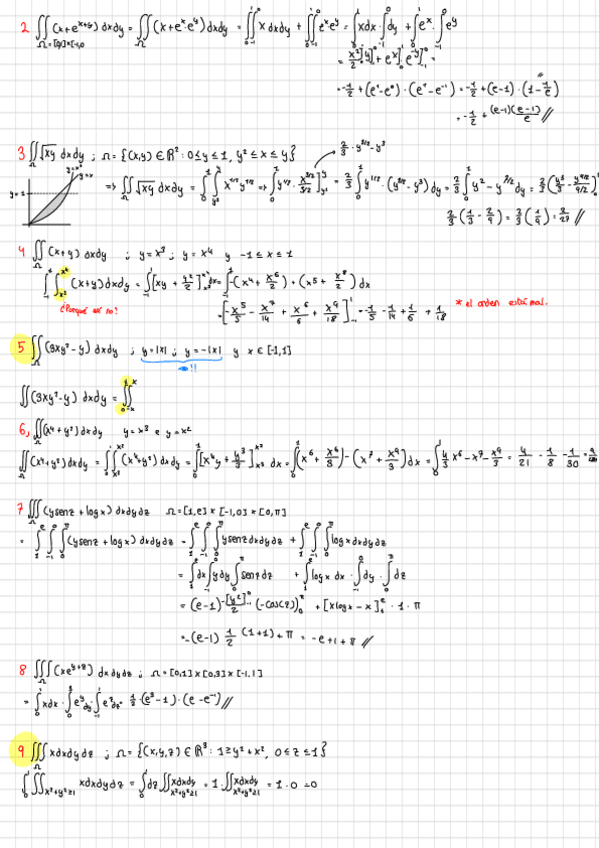 2 ∬_Ω (x+e^{x+y}) dxdy = ∬_Ω (x+e^x·e^y) dxdy = ∫_0^1∫_{-1}^0 x dxdy + ∫_0^1∫_{-1}^0 e^x e^y = ∫_0^1 xdx · ∫_{-1}^0 dy + ∫_0^1 e^x · ∫_{-1}^0 e^y
Ω=[0,1]×[-1,0]
= x²/2]_0^1 y]_{-1}^0 + e^x]_0^1 e^y]_{-1}^0 =
= -1/2 + (e^1-e^0) · (e^0-e^{-1}) = -1/2 + (e-1) · (1-1/e)
= -1/2 + (e-1)(e-1)/e //
3 ∬_Ω √xy dxdy ; Ω = {(x,y) ∈ ℝ² : 0≤y≤1, y²≤x≤y}
2/3 · y^{3/2} - y³
y=1
y=x
⇒ ∬_Ω √xy dxdy = ∫_0^1∫_{y²}^y x^{1/2} y^{1/2} ⇒ ∫_0^1 y^{1/2} · x^{3/2}/{3/2}]_{y²}^y = 2/3 ∫_0^1 y^{1/2} · (y^{3/2} - y³) dy = 2/3 ∫_0^1 y² - y^{7/2} dy = 2/3 (y³/3 - y^{9/2}/{9/2})]_0^1
2/3 (1/3 - 2/9) = 2/3 (1/9) = 2/27 //
4 ∬_Ω (x+y) dxdy ; y=x³ ; y=x⁴ y -1≤x≤1
∫_{-1}^1∫_{x³}^{x⁴} (x+y) dxdy = ∫_{-1}^1 [xy + y²/2]_{x³}^{x⁴} dx = ∫_{-1}^1 -(x⁴ + x⁶/2) + (x⁵ + x⁸/2) dx
¿Porqué así no?
= [-x⁵/5 - x⁷/14 + x⁶/6 + x⁹/18]_{-1}^1 = -1/5 - 1/14 + 1/6 + 1/18
* el orden está mal.
5 ∬_Ω (3xy²-y) dxdy ; y=|x| ; y=-|x| y x∈[-1,1]
!!
∬(3xy²-y) dxdy = ∫_0^1∫_{-x}^x
6, ∬_Ω (x⁴+y²) dxdy y=x³ e y=x²
∬_Ω (x⁴+y²) dxdy = ∫_0^1∫_{x³}^{x²} (x⁴+y²) dxdy = ∫_0^1 [x⁴y + y³/3]_{x³}^{x²} dx = ∫_0^1 (x⁶ + x⁶/3) - (x⁷ + x⁹/3) dx = ∫_0^1 4/3 x⁶ - x⁷ - x⁹/3 = 4/21 - 1/8 - 1/30 =
7 ∭_Ω (ysenz + logx) dxdydz Ω=[1,e] × [-1,0] × [0,π]
= ∫_1^e∫_{-1}^0∫_0^π (ysenz + logx) dxdydz = ∫_1^e∫_{-1}^0∫_0^π ysenz dxdydz + ∫_1^e∫_{-1}^0∫_0^π logx dxdydz
= ∫_1^e dx ∫_{-1}^0 ydy ∫_0^π senz dz + ∫_1^e logx dx · ∫_{-1}^0 dy · ∫_0^π dz
= (e-1) · -[y²/2]_{-1}^0 (-cos(z))_0^π + [xlogx - x]_1^e · 1 · π
= -(e-1) 1/2 (1+1) + π = -e+1+π //
8 ∭_Ω (xe^{y+z}) dxdydz ; Ω=[0,1]×[0,3]×[-1,1]
= ∫_0^1 xdx · ∫_0^3 e^y dy · ∫_{-1}^1 e^z dz = 1/2 · (e³-1) · (e-e^{-1}) //
9 ∭_Ω xdxdydz ; Ω = {(x,y,z) ∈ ℝ³ : 1≥y²+x², 0≤z≤1}
∫_0^1 ∬_{x²+y²≥1} xdxdydz = ∫_0^1 dz ∬_{x²+y²≥1} xdxdy = 1 · ∬_{x²+y²≥1} xdxdy = 1·0 =0